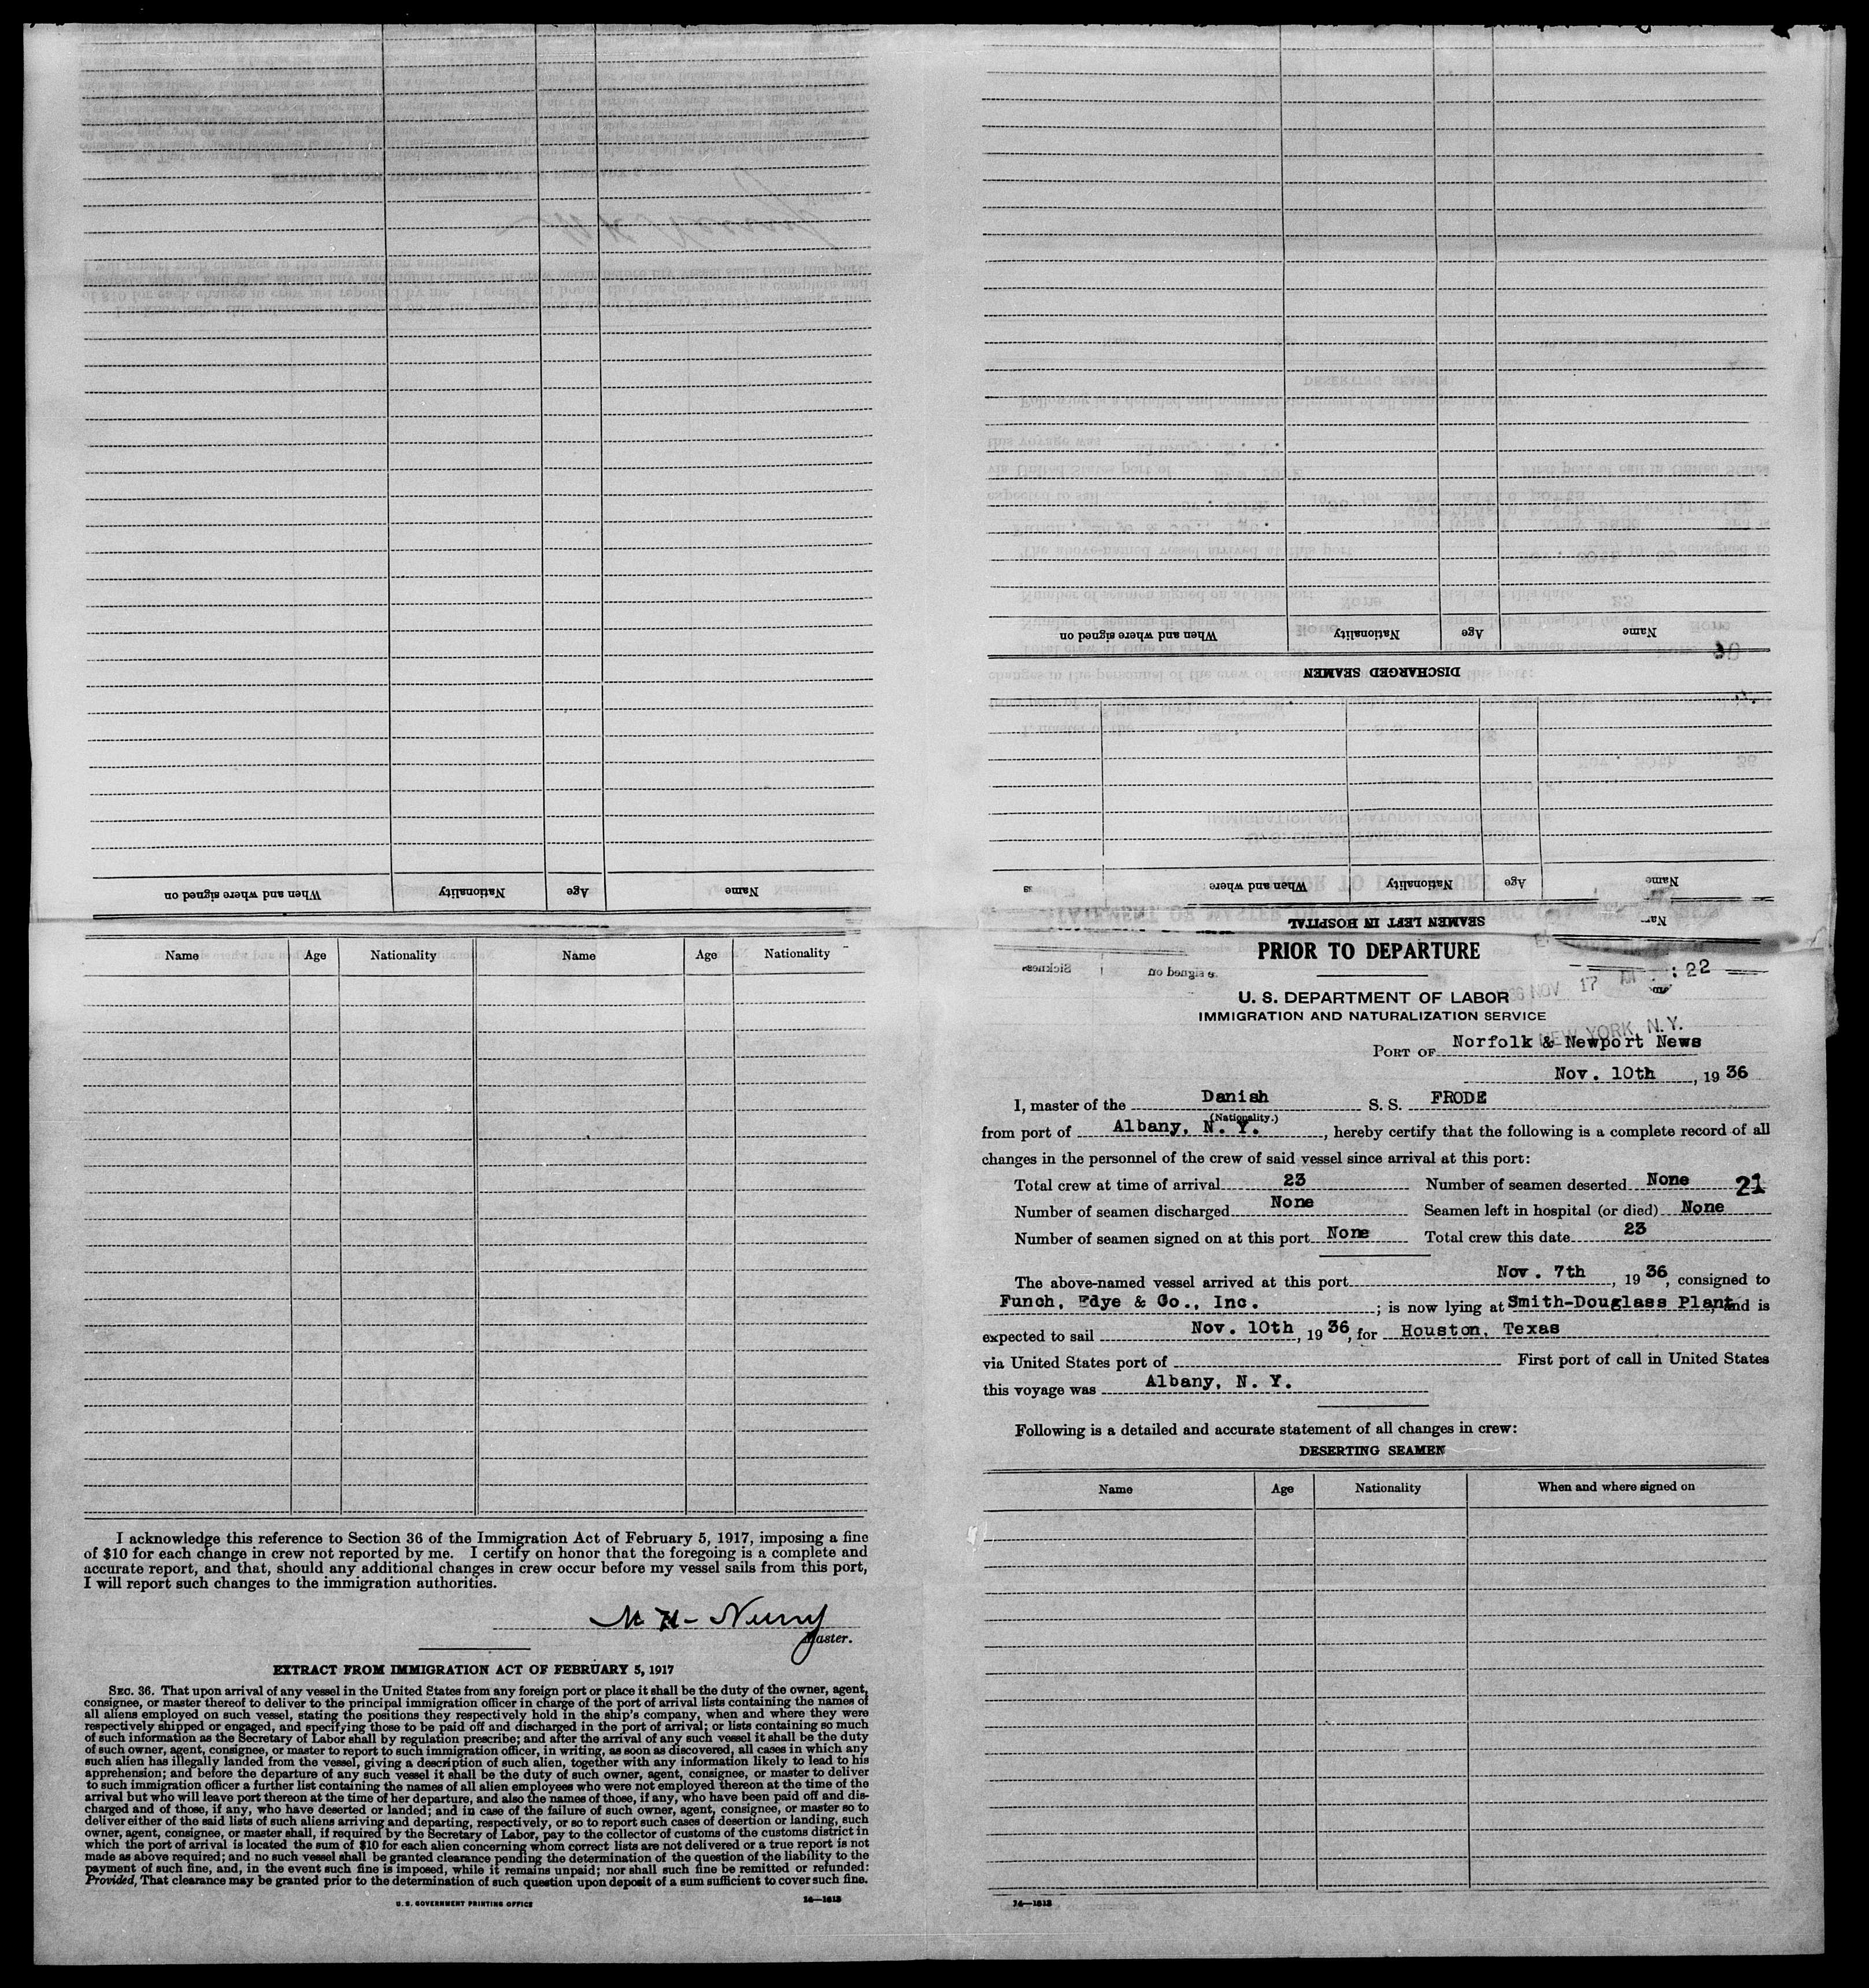 When and where signed on Nationality Age Name
Name Age Nationality Name Age Nationality
I acknowledge this reference to Section 36 of the Immigration Act of February 5, 1917, imposing a fine
of $10 for each change in crew not reported by me. I certify on honor that the foregoing is a complete and
accurate report, and that, should any additional changes in crew occur before my vessel sails from this port,
I will report such changes to the immigration authorities.
Master.
EXTRACT FROM IMMIGRATION ACT OF FEBRUARY 5, 1917
SEC. 36. That upon arrival of any vessel in the United States from any foreign port or place it shall be the duty of the owner, agent,
consignee, or master thereof to deliver to the principal immigration officer in charge of the port of arrival lists containing the names of
all aliens employed on such vessel, stating the positions they respectively hold in the ship's company, when and where they were
respectively shipped or engaged, and specifying those to be paid off and discharged in the port of arrival; or lists containing so much
of such information as the Secretary of Labor shall by regulation prescribe; and after the arrival of any such vessel it shall be the duty
of such owner, agent, consignee, or master to report to such immigration officer, in writing, as soon as discovered, all cases in which any
such alien has illegally landed from the vessel, giving a description of such alien, together with any information likely to lead to his
apprehension; and before the departure of any such vessel it shall be the duty of such owner, agent, consignee, or master to deliver
to such immigration officer a further list containing the names of all alien employees who were not employed thereon at the time of the
arrival but who will leave port thereon at the time of her departure, and also the names of those, if any, who have been paid off and dis-
charged and of those, if any, who have deserted or landed; and in case of the failure of such owner, agent, consignee, or master so to
deliver either of the said lists of such aliens arriving and departing, respectively, or so to report such cases of desertion or landing, such
owner, agent, consignee, or master shall, if required by the Secretary of Labor, pay to the collector of customs of the customs district in
which the port of arrival is located the sum of $10 for each alien concerning whom correct lists are not delivered or a true report is not
made as above required; and no such vessel shall be granted clearance pending the determination of the question of the liability to the
payment of such fine, and, in the event such fine is imposed, while it remains unpaid; nor shall such fine be remitted or refunded:
Provided, That clearance may be granted prior to the determination of such question upon deposit of a sum sufficient to cover such fine.
U. S. GOVERNMENT PRINTING OFFICE 14—1613
When and where signed on Nationality Age Name
DISCHARGED SEAMEN
When and where Nationality Age Name
SEAMEN LEFT IN HOSPITAL
PRIOR TO DEPARTURE
Sickness
NOV 17 :22
U. S. DEPARTMENT OF LABOR
IMMIGRATION AND NATURALIZATION SERVICE
NEW YORK, N. Y.
PORT OF Norfolk & Newport News
Nov. 10th, 1936
I, master of the Danish S. S. FRODE
(Nationality.)
from port of Albany, N. Y., hereby certify that the following is a complete record of all
changes in the personnel of the crew of said vessel since arrival at this port:
Total crew at time of arrival 23 Number of seamen deserted None 21
Number of seamen discharged None Seamen left in hospital (or died) None
Number of seamen signed on at this port None Total crew this date 23
The above-named vessel arrived at this port Nov. 7th, 1936, consigned to
Funch, Edye & Co., Inc.; is now lying at Smith-Douglass Plant, and is
expected to sail Nov. 10th, 1936, for Houston, Texas
via United States port of First port of call in United States
this voyage was Albany, N. Y.
Following is a detailed and accurate statement of all changes in crew:
DESERTING SEAMEN
Name Age Nationality When and where signed on
14—1613